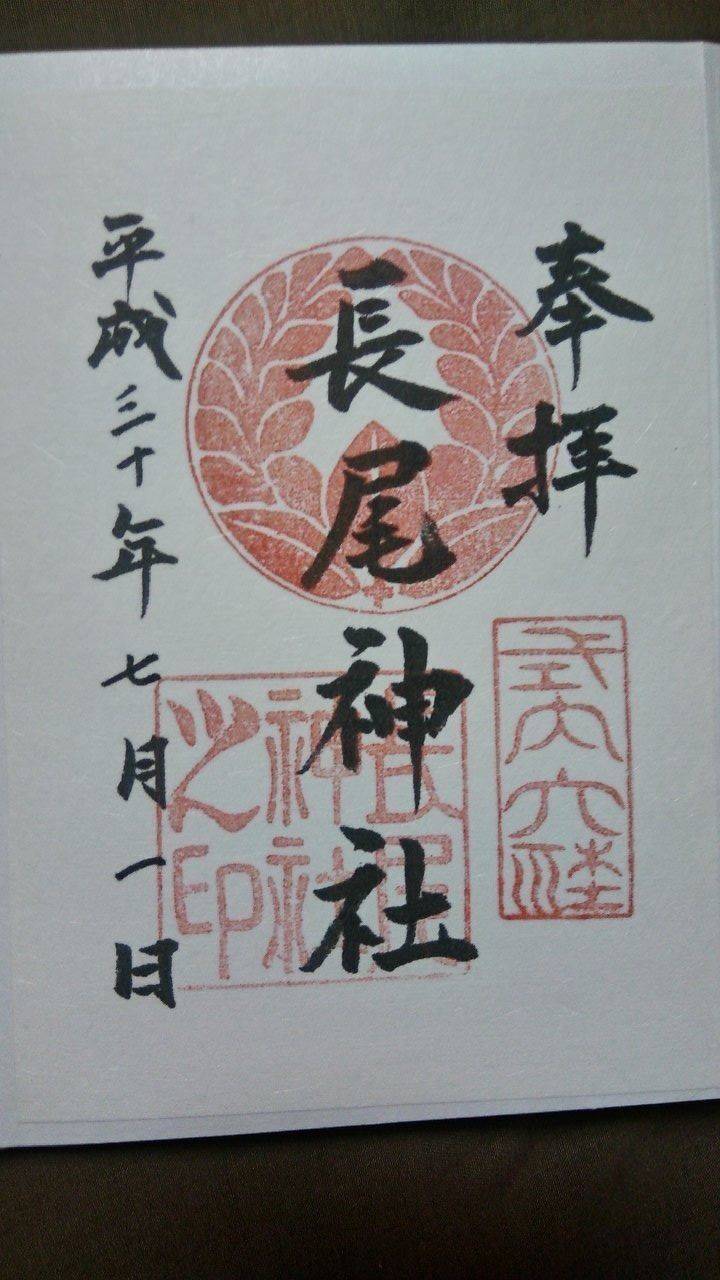 奉拝
式内大社
長尾神社
長尾神社之印
平成三十年七月一日